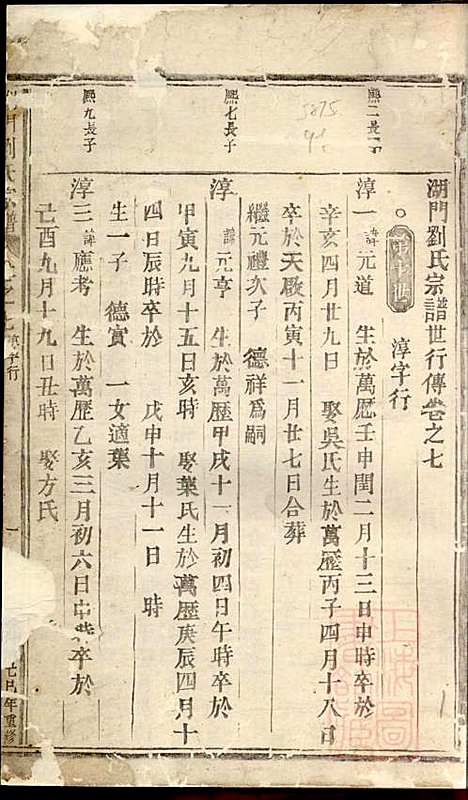 湖門劉氏宗譜世行傳卷之七
第十世 淳字行
熙二長子
淳一 諱元道 生於萬歷壬申閏二月十三日申時卒於
辛亥四月廿九日 娶吳氏生於萬歷丙子四月十八日
卒於天啟丙寅十一月廿七日合葬
繼元禮次子 德祥爲嗣
熙七長子
淳 諱元亨 生於萬歷甲戌十一月初四日午時卒於
甲寅九月十五日亥時 娶葉氏生於萬歷庚辰四月十
四日辰時卒於 戊申十月十一日 時
生一子 德實 一女適葉
熙九長子
淳三 諱應考 生於萬歷乙亥三月初六日申時卒於
己酉九月十九日丑時 娶方氏
劉氏宗譜
淳字行
一
己巳年重修
5875